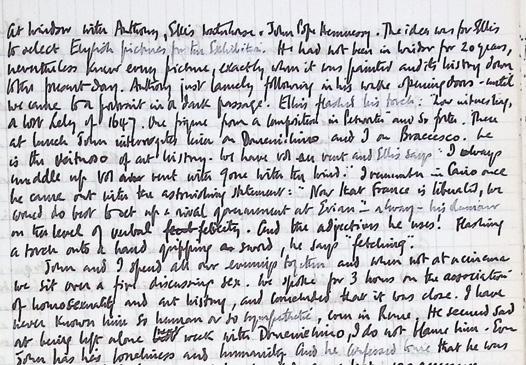 At Windsor with Anthony, Ellis Waterhouse & John Pope Hennessy. The idea was for Ellis
to select English pictures for the Exhibition. He had not been in Windsor for 20 years,
nevertheless knew every picture, exactly when it was painted and its history down
to the present-day. Anthony just lamely following in his wake opening doors - until
we came to a portrait in a dark passage. Ellis flashed his torch: how interesting,
a lost Lely of 1647. One figure from a composition in Petworth and so forth. Then
at lunch John interrogates him on Domenichino and I on Braccesco. He
is the virtuoso of art history. We have vol au vent and Ellis says "I always
muddle up vol au vent with Gone with the Wind." I remember in Cairo once
he came out with the astonishing statement: "Now that France is liberated, we
would do best to set up a rival government at Evian" - always his humour
on the level of verbal felicity. And the adjectives he uses! Flashing
a torch onto a hand gripping a sword, he says "fetching".
John and I spend all our evenings together and when not at a cinema
we sit over a fire discussing sex. We spoke for 3 hours on the association
of homosexuality and art history, and concluded that it was close. I have
never known him so human or so sympathetic, even in Rome. He seemed sad
at being left alone next week with Domenichino, I do not blame him. Even
John has his loneliness and humanity and he confessed to me that he was